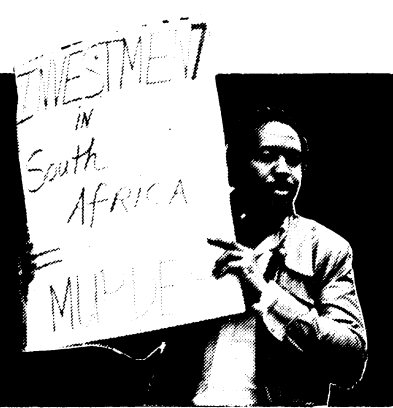 INVESTMENT
IN
South
AFRICA
=
MURDER